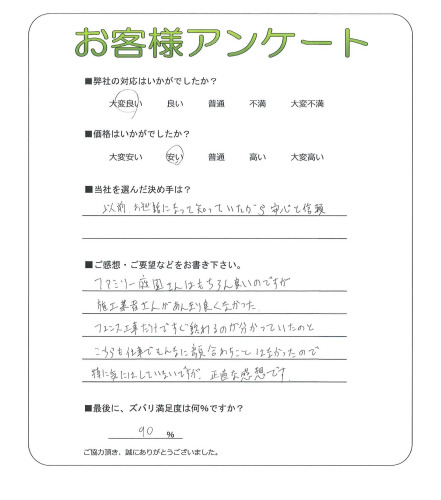 お客様アンケート
■弊社の対応はいかがでしたか？
大変良い 良い 普通 不満 大変不満
■価格はいかがでしたか？
大変安い 安い 普通 高い 大変高い
■当社を選んだ決め手は？
以前お世話になって知っていたから 安心と信頼
■ご感想・ご要望などをお書き下さい。
ファミリー庭園さんはもちろん良いのですが
施工業者さんがあんまり良くなかった.
フェンス工事だけですぐ終わるのが分かっていたのと
こちらも仕事でそんなに顔合わすことはなかったので
特に気にはしていないですが. 正直な感想です.
■最後に、ズバリ満足度は何％ですか？
90 ％
ご協力頂き、誠にありがとうございました。